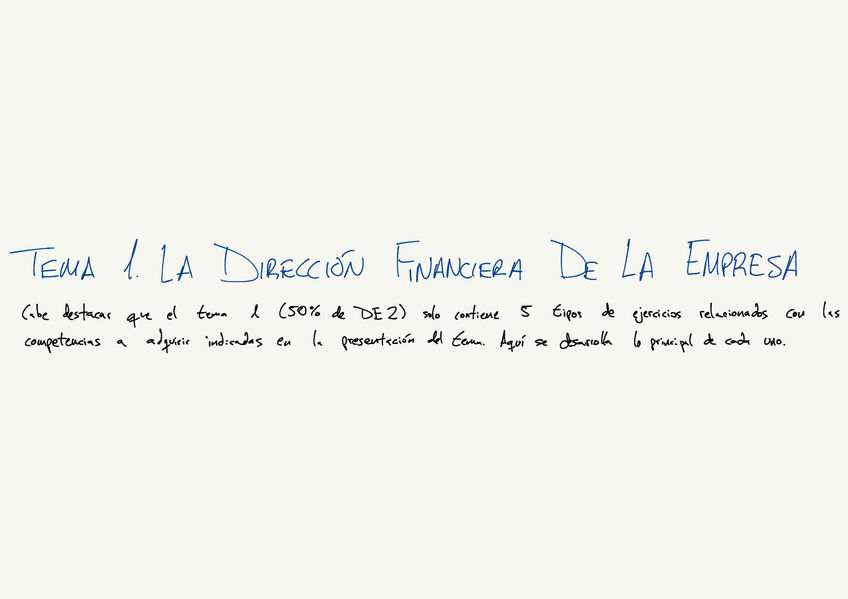 TEMA 1. LA DIRECCIÓN FINANCIERA DE LA EMPRESA
Cabe destacar que el tema 1 (50% de DE2) solo contiene 5 tipos de ejercicios relacionados con las
competencias a adquirir indicadas en la presentación del tema. Aquí se desarrolla lo principal de cada uno.